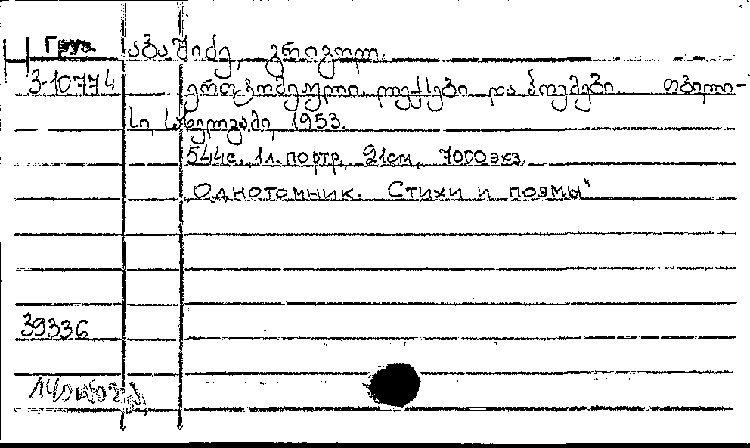 Груз. აბაშიძე, გრიგოლ.
3-10774 ერთტომეული ლექსები და პოემები. თბილი-
სი, საბლიტგამი, 1953.
544с. 1л. портр. 21см, 7000экз.
Однотомник. Стихи и поэмы"
39336